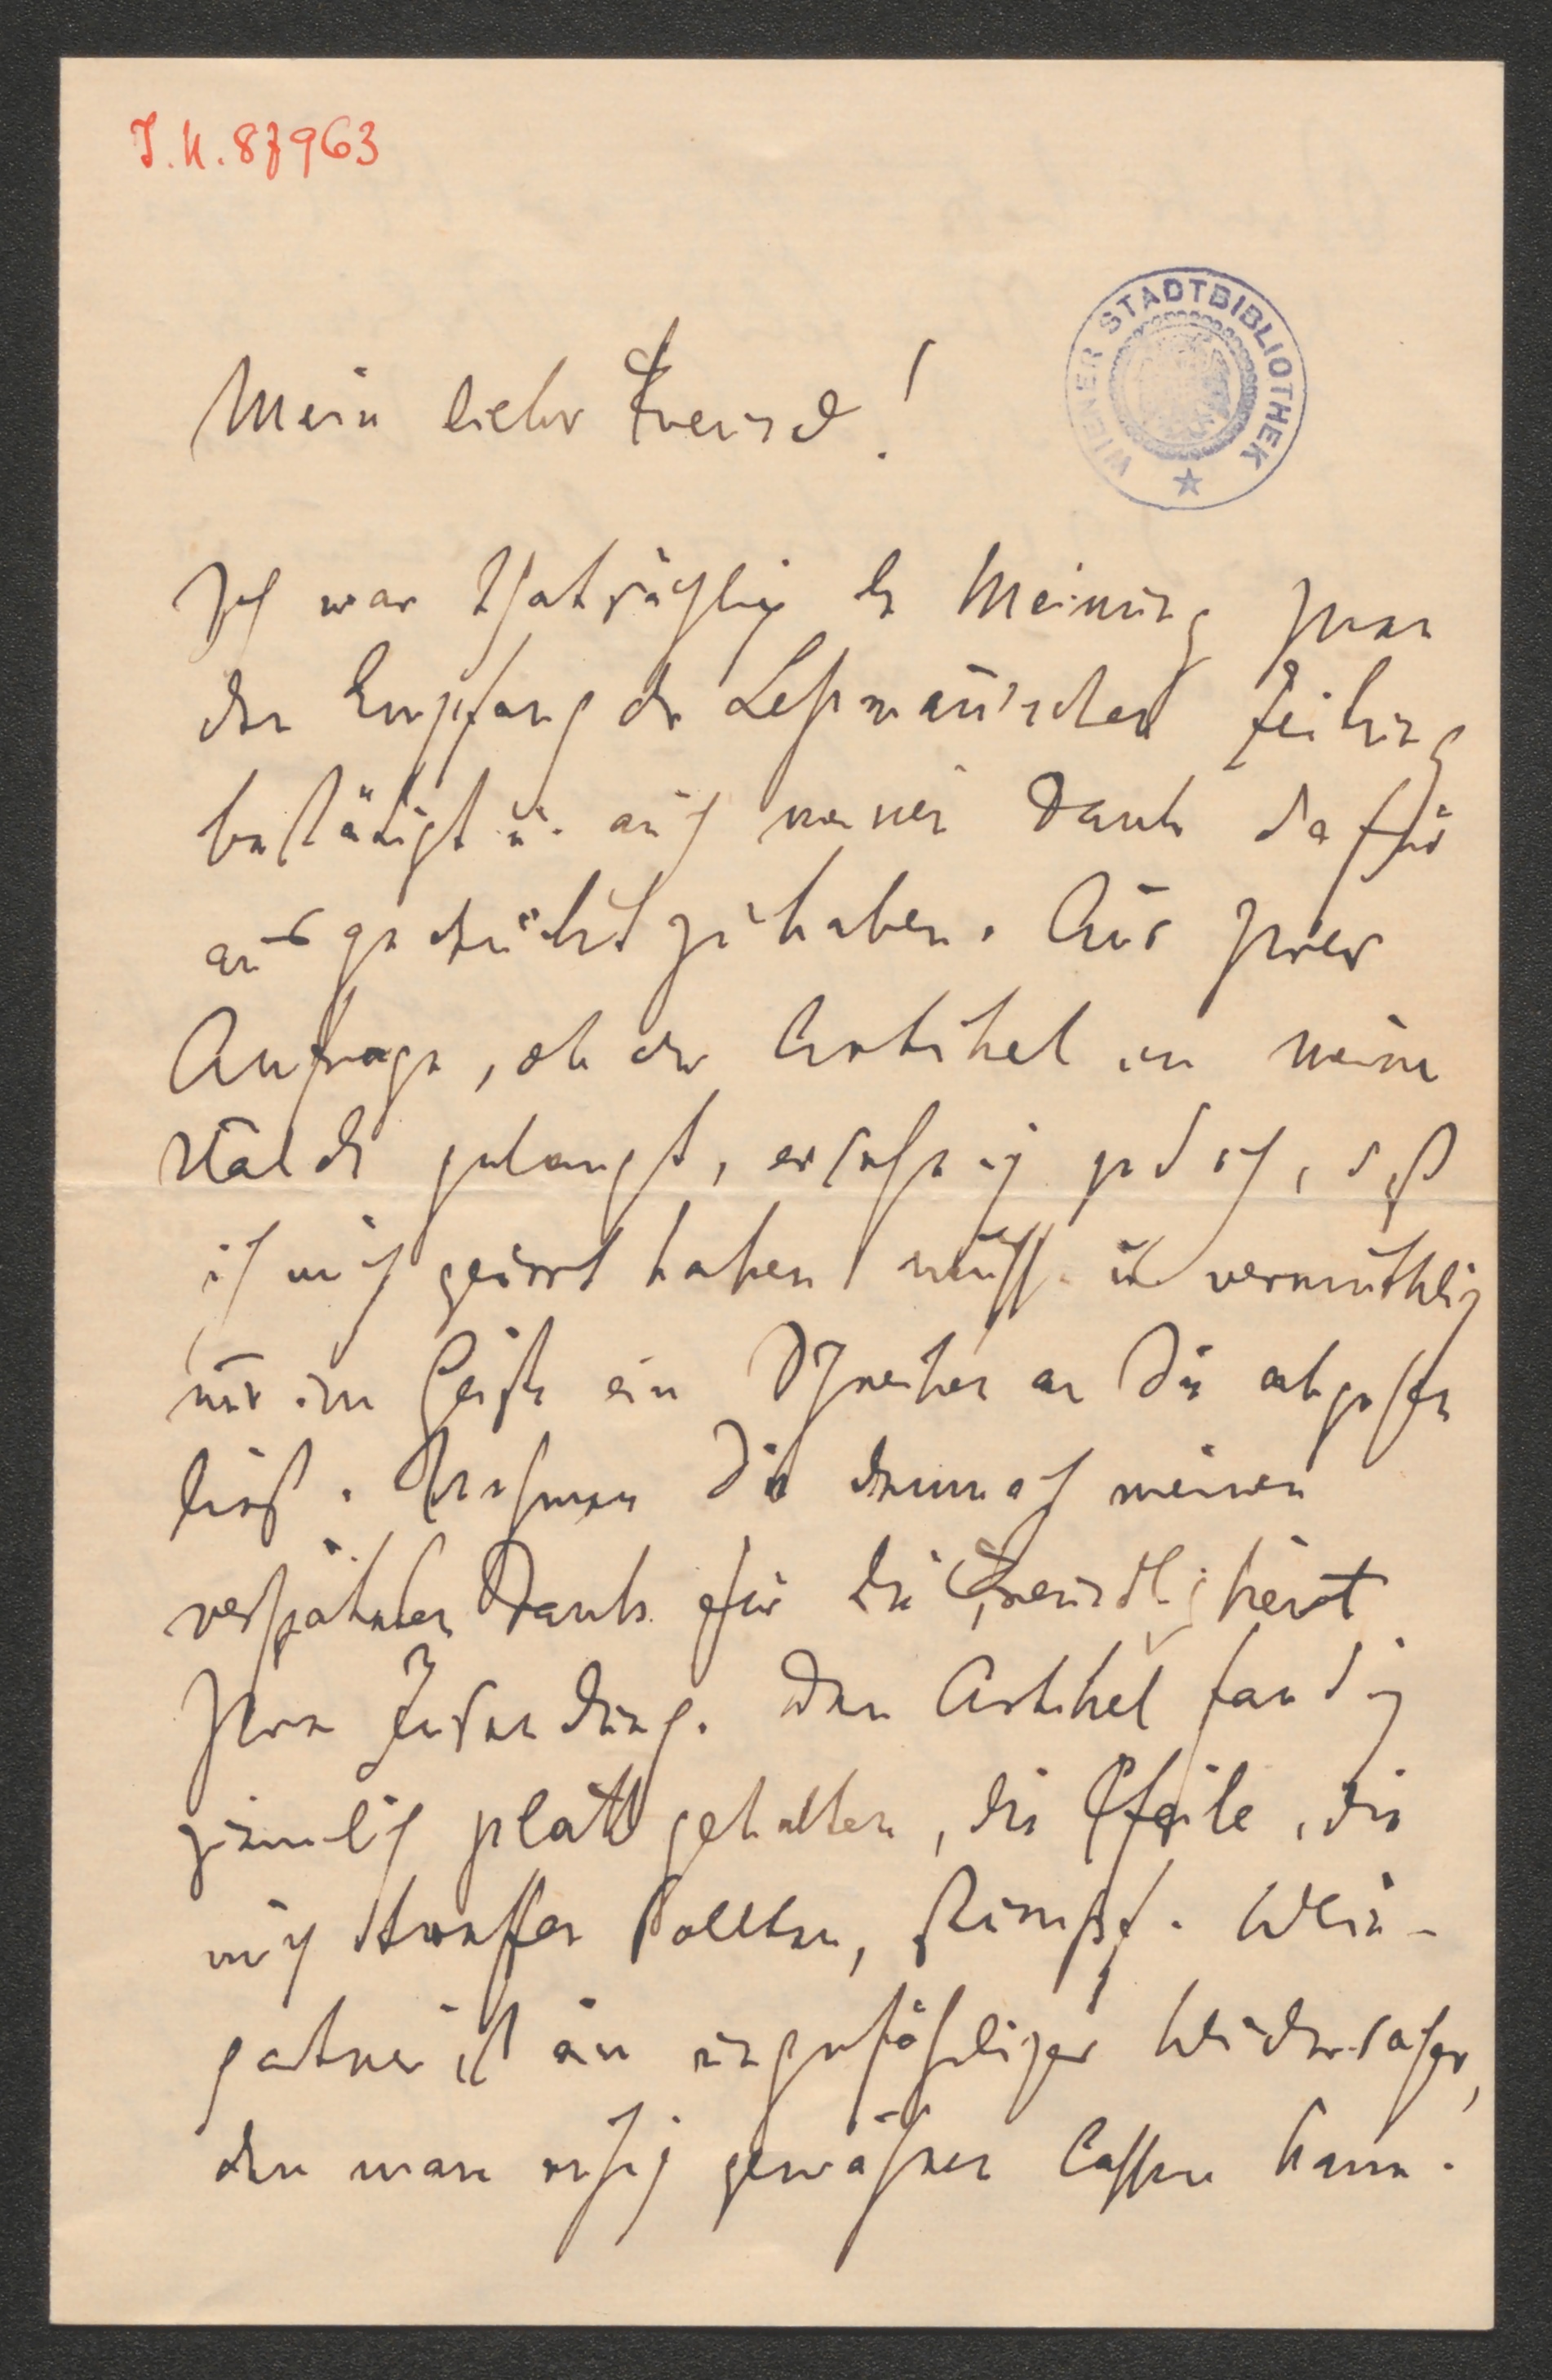 I.N. 87963
WIENER STADTBIBLIOTHEK
Mein lieber Freund!
Ich war thatsächlich der Meinung Ihnen
den Empfang der Leßmann'schen Zeitung
bestätigt u. auch meinen Dank dafür
ausgedrückt zu haben. Aus Ihrer
Anfrage, ob der Artikel in meine
Hände gelangt, ersehe ich jedoch, daß
ich mich geirrt haben muß und vermuthlich
nur im Geiste ein Schreiben an Sie abgehen
ließ. Nehmen Sie demnach meinen
verspäteten Dank für die Freundlichkeit
Ihrer Zusendung. Den Artikel fand ich
ziemlich platt gehalten, die Pfeile, die
mich treffen sollten, stumpf. Wein-
gartner ist ein ungefährlicher Widersacher,
den man ruhig gewähren lassen kann.